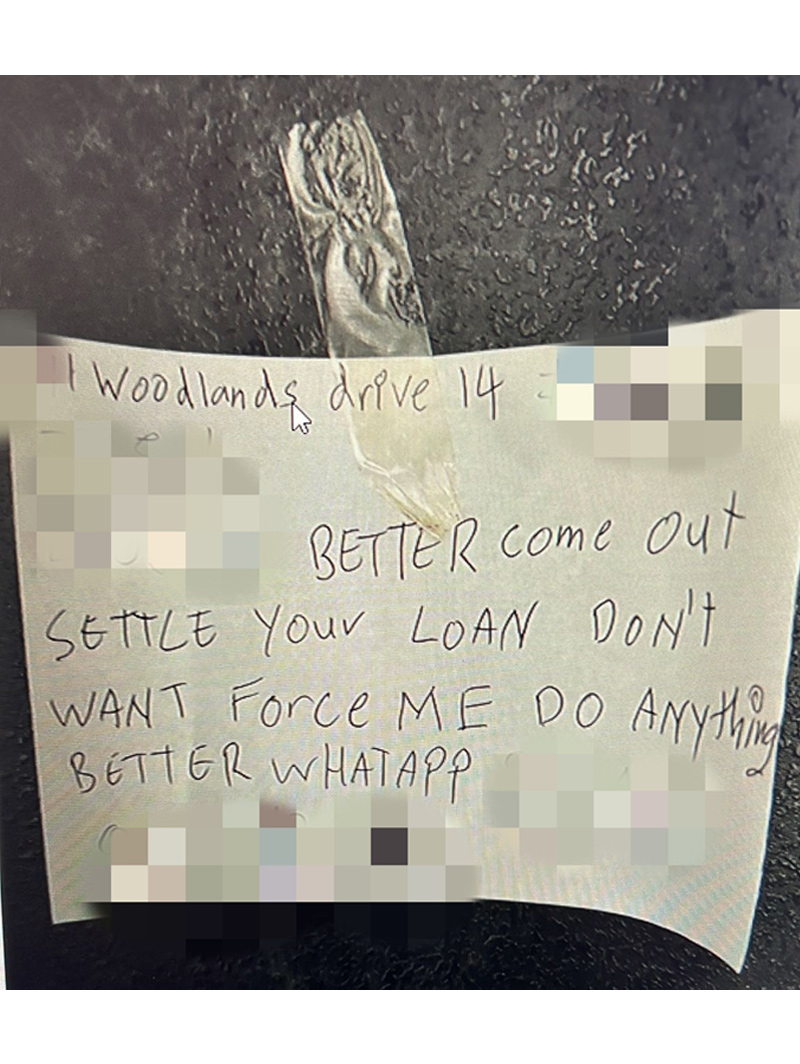 Woodlands drive 14
BETTER come out
SETTLE Your LOAN DON'T
WANT Force ME DO ANything
BETTER WHATAPP